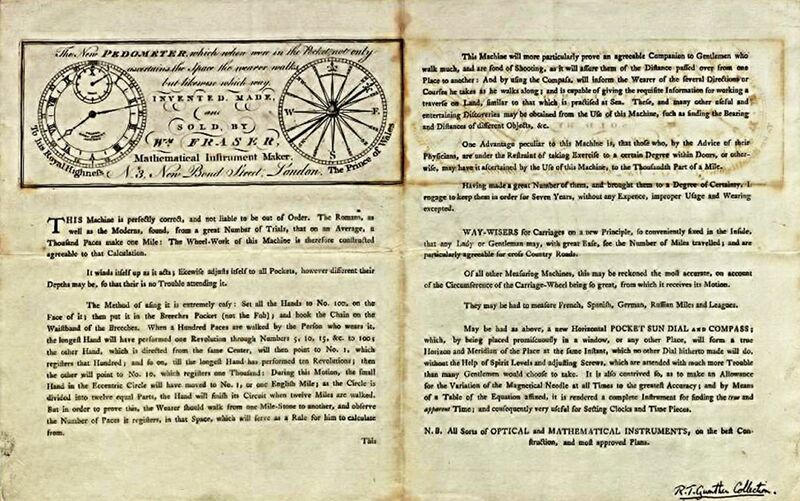 The New PEDOMETER, which when worn in the Pocket not only
ascertains the Space the wearer walks,
but likewise which way.
INVENTED, MADE,
and
SOLD, BY
Wm. FRASER,
Mathematical Instrument Maker,
N. 3, New Bond Street, London.
To his Royal Highness
The Prince of Wales
W
E
S
THIS Machine is perfectly correct, and not liable to be out of Order. The Romans, as
well as the Moderns, found, from a great Number of Trials, that on an Average, a
Thousand Paces make one Mile: The Wheel-Work of this Machine is therefore constructed
agreeable to that Calculation.
It winds itself up as it acts; likewise adjusts itself to all Pockets, however different their
Depths may be, so that their is no Trouble attending it.
The Method of using it is extremely easy: Set all the Hands to No. 100, on the
Face of it; then put it in the Breeches Pocket (not the Fob); and hook the Chain on the
Waistband of the Breeches. When a Hundred Paces are walked by the Person who wears it,
the longest Hand will have performed one Revolution through Numbers 5, 10, 15, &c. to 100;
the other Hand, which is directed from the same Center, will then point to No. 1, which
registers that Hundred; and so on, till the longest Hand has performed ten Revolutions; then
the other will point to No. 10, which registers one Thousand: During this Motion, the small
Hand in the Eccentric Circle will have moved to No. 1, or one English Mile; as the Circle is
divided into twelve equal Parts, the Hand will finish its Circuit when twelve Miles are walked.
But in order to prove this, the Wearer should walk from one Mile-Stone to another, and observe
the Number of Paces it registers, in that Space, which will serve as a Rule for him to calculate
from.
This
This Machine will more particularly prove an agreeable Companion to Gentlemen who
walk much, and are fond of Shooting, as it will assure them of the Distance passed over from one
Place to another: And by using the Compass, will inform the Wearer of the several Directions or
Courses he takes as he walks along; and is capable of giving the requisite Information for working a
traverse on Land, similar to that which is practised at Sea. These, and many other useful and
entertaining Discoveries may be obtained from the Use of this Machine, such as finding the Bearing
and Distances of different Objects, &c.
One Advantage peculiar to this Machine is, that those who, by the Advice of their
Physicians, are under the Restraint of taking Exercise to a certain Degree within Doors, or other-
wise, may have it ascertained by the Use of this Machine, to the Thousandth Part of a Mile.
Having made a great Number of them, and brought them to a Degree of Certainty, I
engage to keep them in order for Seven Years, without any Expence, improper Usage and Wearing
excepted.
WAY-WISERS for Carriages on a new Principle, so conveniently fixed in the Inside,
that any Lady or Gentleman may, with great Ease, see the Number of Miles travelled; and are
particularly agreeable for cross Country Roads.
Of all other Measuring Machines, this may be reckoned the most accurate, on account
of the Circumference of the Carriage-Wheel being so great, from which it receives its Motion.
They may be had to measure French, Spanish, German, Russian Miles and Leagues.
May be had as above, a new Horizontal POCKET SUN DIAL AND COMPASS;
which, by being placed promiscuously in a window, or any other Place, will form a true
Horizon and Meridian of the Place at the same Instant, which no other Dial hitherto made will do,
without the Help of Spirit Levels and adjusting Screws, which are attended with much more Trouble
than many Gentlemen would choose to take. It is also contrived so, as to make an Allowance
for the Variation of the Magnetical Needle at all Times to the greatest Accuracy; and by Means
of a Table of the Equation affixed, it is rendered a complete Instrument for finding the true and
apparent Time; and consequently very useful for Setting Clocks and Time Pieces.
N.B. All Sorts of OPTICAL and MATHEMATICAL INSTRUMENTS, on the best Con-
struction, and most approved Plans.
R.T. Gunther Collection.